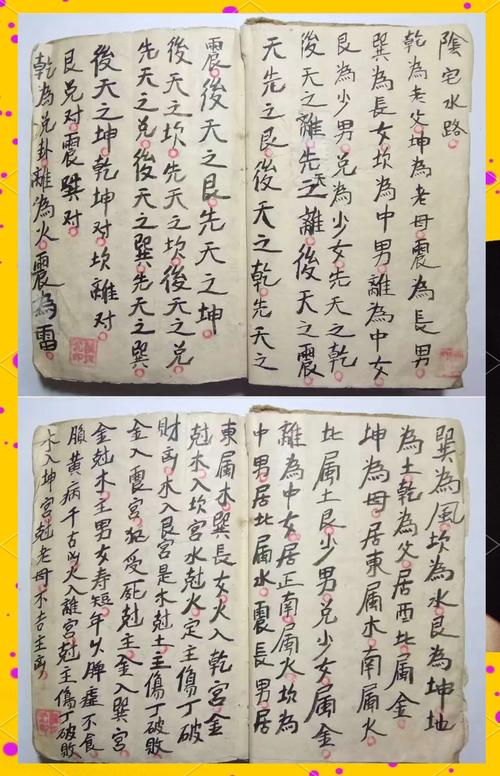 陰宅水路
乾為老父坤為老母震為長男
巽為長女坎為中男離為中女
艮為少男兌為少女先天之乾
後天之離先天之離後天之震
天先之艮後天之乾先天之
震後天之艮先天之坤
後天之坎先天之坎後天之兌
先天之兌後天之巽先天之巽
後天之坤乾坤对坎離对
艮兌对震巽对
乾為兌卦離為火震為雷
巽為風坎為水艮為坤地
為土乾為父居西北屬金
坤為母居東屬木南屬火
北屬土艮少男兌少女屬金
離為中女居正南屬火坎為
中男居北屬水震長男居
東屬木巽長女火入乾宮金
尅木入坎宮水尅火定主傷丁破
財凶木入艮宮是木尅土主傷丁破敗
金入震宮犯受死尅主金入巽宮
金尅木主男女寿短年以脾虛不食
臉黄病千古凶火入離宮尅主傷丁破敗
木入坤宮尅老母不吉主凶